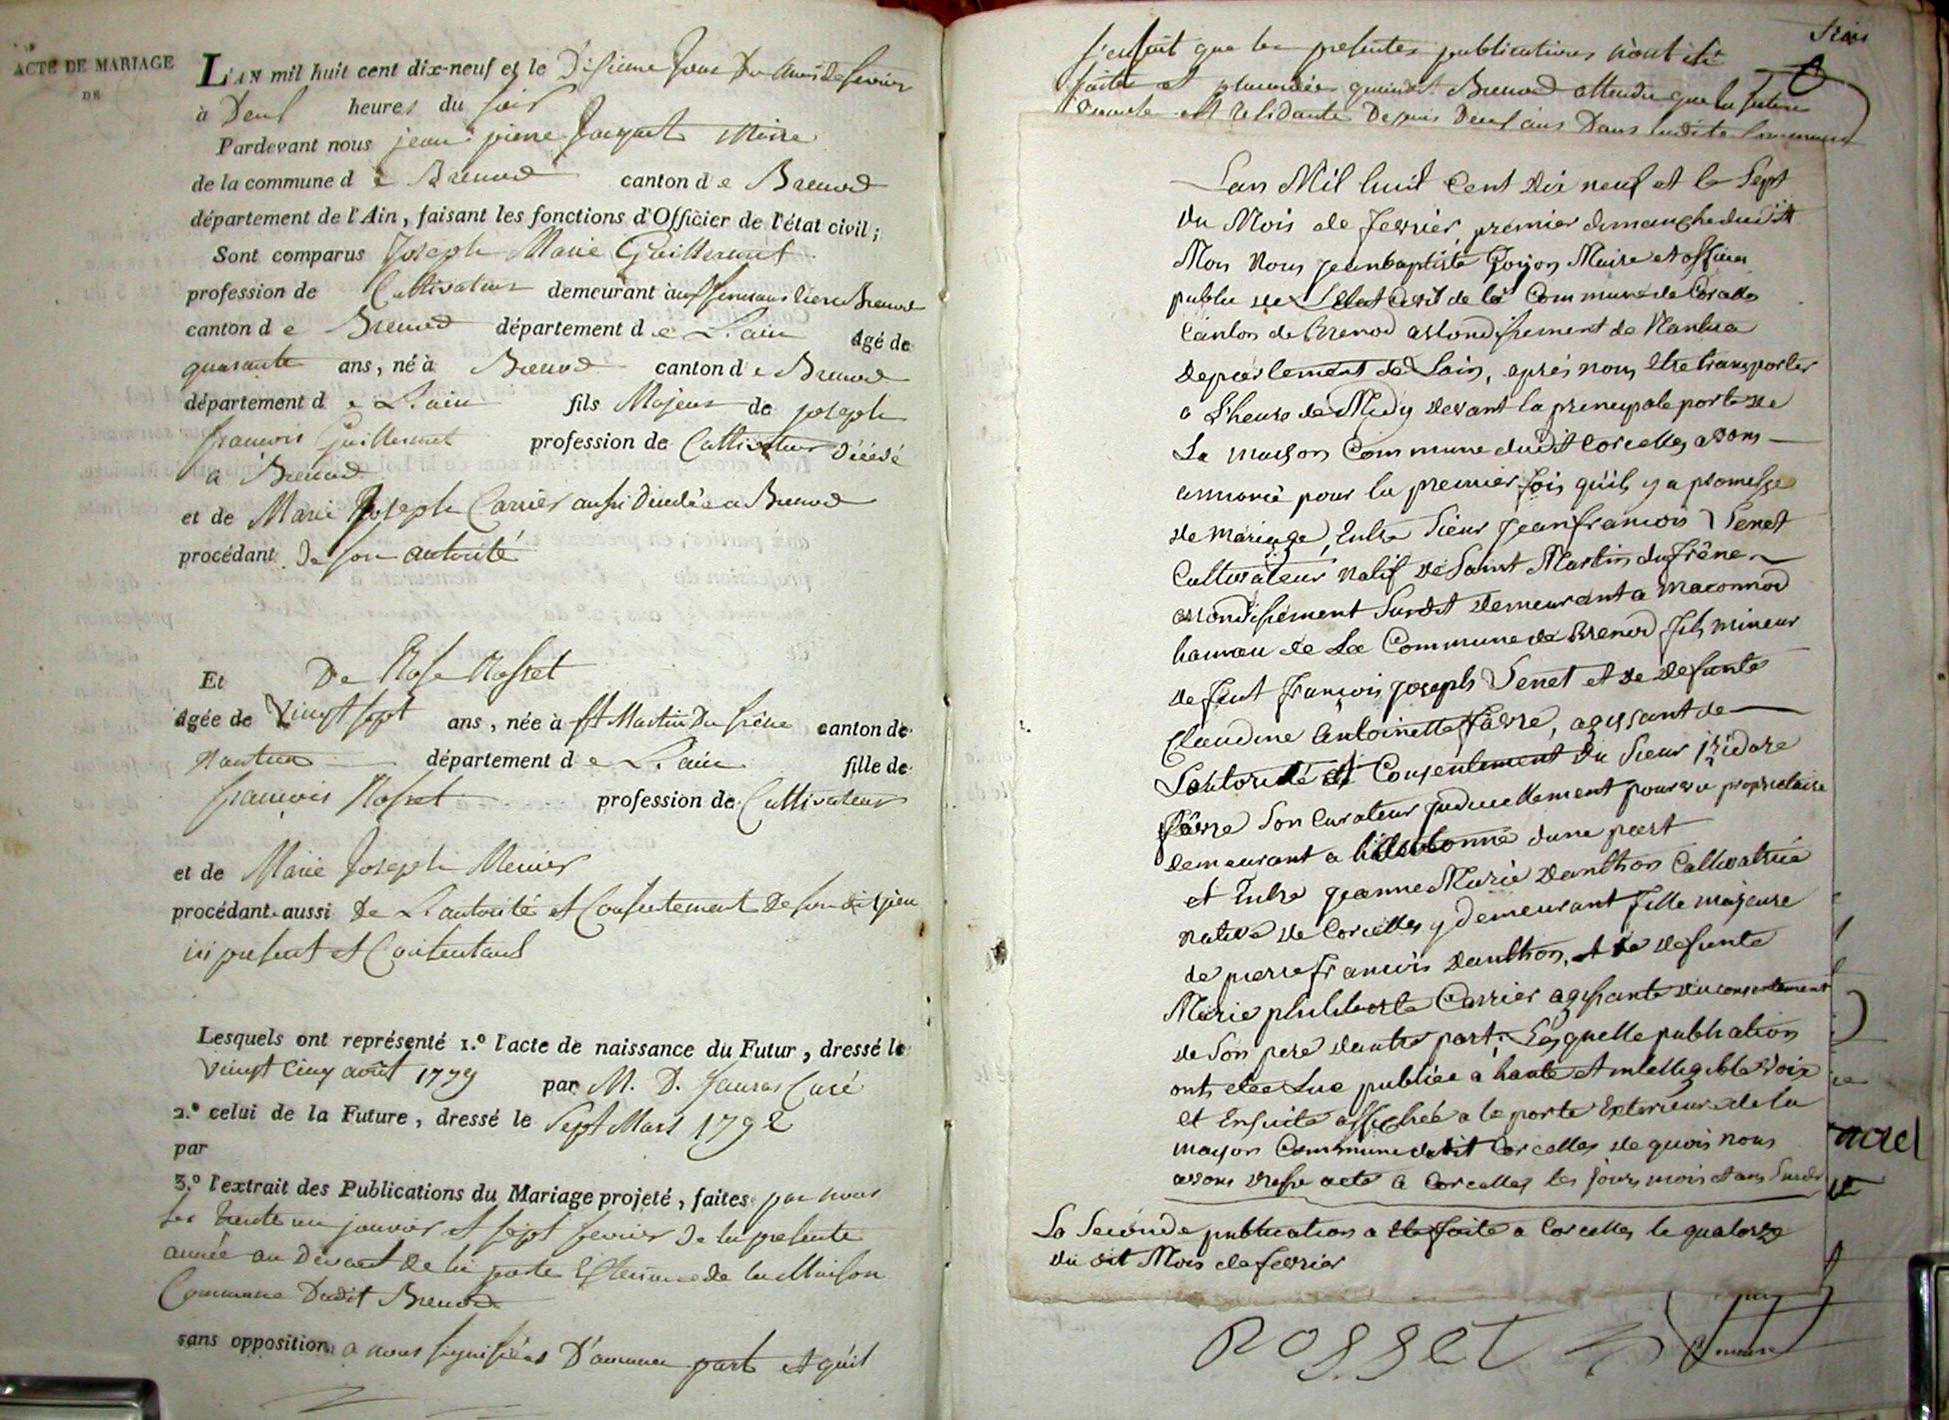 ACTE DE MARIAGE
DE
L'AN mil huit cent dix-neuf et le Disieme Jour Du mois de fevrier
à Deux heures du soir
Pardevant nous jean pierre Maire
de la commune d e Brenod canton d e Brenod
département de l'Ain, faisant les fonctions d'Officier de l'état civil;
Sont comparus Joseph Marie Guillermet
profession de Cultivateur demeurant Brenod
canton d e Brenod département d e L'ain âgé de
quarante ans, né à Brenod canton d e Brenod
département d e L'ain fils Majeur de joseph
françois Guillermet profession de Cultivateur Décédé
a Brenod
et de Marie Joseph Carrier aussi Décédée a Brenod
procédant De son autorité
Et De Rose Rosset
âgée de Vingt sept ans, née à St Martin Du frêne canton de
Nantua département d e L'ain fille de
françois Rosset profession de Cultivateur
et de Marie Joseph Menier
procédant aussi De L'autorité et Consentement De son dit pere
ici present et Consentant
Lesquels ont représenté 1.º l'acte de naissance du Futur, dressé le
vingt cinq août 1779 par M. D. Curé
2.º celui de la Future, dressé le Sept Mars 1792
par
3.º l'extrait des Publications du Mariage projeté, faites par nous
les trente un janvier et sept fevrier De la presente
année au Devant de la porte Exterieure de la Maison
Commune Dudit Brenod
sans opposition a nous signifiées D'aucune part et qu'il
trois
s'ensuit que les presentes publications n'ont été
faites et Brenod attendu que la future
est residante Depuis Deux ans Dans ladite Commune
Lan Mil huit Cent dix neuf et le Sept
du Mois de fevrier, premier dimanche dudit
Mois Nous jeanbaptiste Goujon Maire et officier
public de Letat Civil de la Commune de Corcelles
Canton de Brenod arrondissement de Nantua
Departement de Lain, après nous être transporter
a L'heure de Midy devant la principale porte de
La maison Commune dudit Corcelles avons
annoncé pour la premier fois qu'il y a promesse
de mariage, Entre Sieur jeanfrancois Venet
Cultivateur natif de Saint Martin du frêne
arrondissement Susdit demeurant a maconnod
hameau de La Commune de Brenod fils mineur
de feut françois joseph Venet et de defunte
Claudine Antoinette favre, agissant de
Lautorité et Consentement du Sieur isidore
favre Son Curateur judiciellement pourvu proprietaire
demeurant a dune part
et Entre jeanne Marie Danthon Cultivatrice
native de Corcelles y demeurant fille majeure
de pierre françois Danthon, et de defunte
Marie philiberte Carrier agissante du consentement
de Son pere dautre part; Lesquelle publication
ont étée Lue publiée a haute et intelligible voix
et Ensuite affichée a la porte Exterieure de la
maison Commune dudit Corcelles de quoi nous
avons dressé acte a Corcelles les jours mois et ans Susdit
La Seconde publication a été faite a Corcelles le quatorze
du dit Mois de fevrier
ROSSET